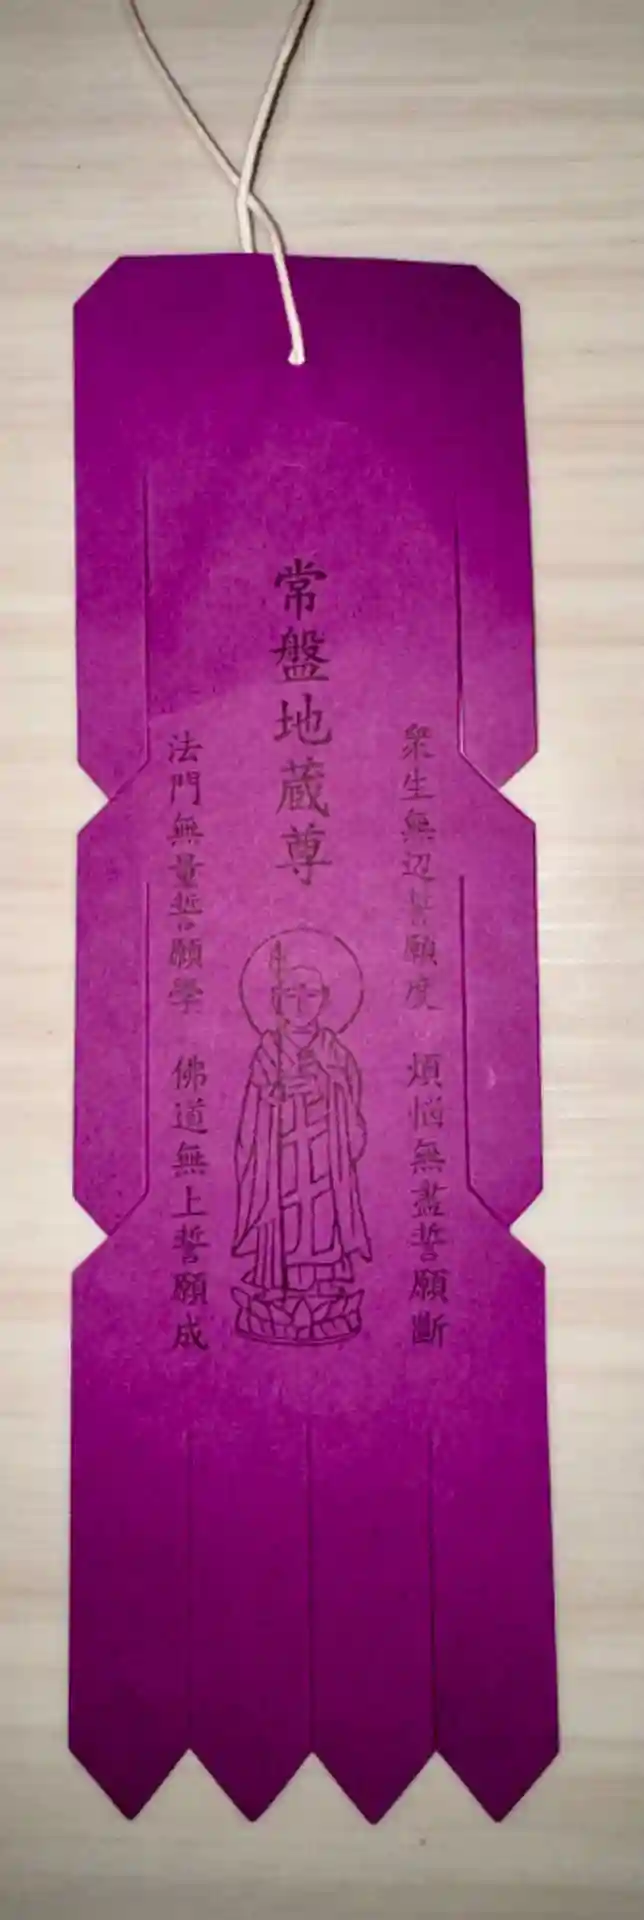 常盤地蔵尊
衆生無辺誓願度 煩悩無盡誓願斷
法門無量誓願學 佛道無上誓願成